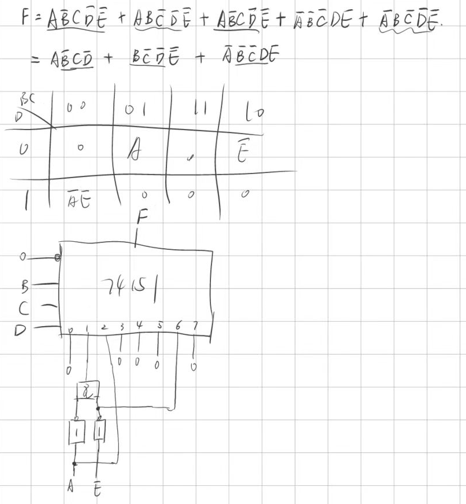 F = AB̅CD̅E̅ + ABC̅D̅E̅ + AB̅CD̅E + A̅B̅C̅DE + A̅BC̅D̅E̅.
= AB̅CD̅ + BC̅D̅E̅ + A̅B̅C̅DE
BC 00 01 11 10
D
0 0 A E̅
1 A̅E̅ 0 0 0
F
0
74151
B
C
D
0 1 2 3 4 5 6 7
0 0 0 0 0
&
1 1
A E